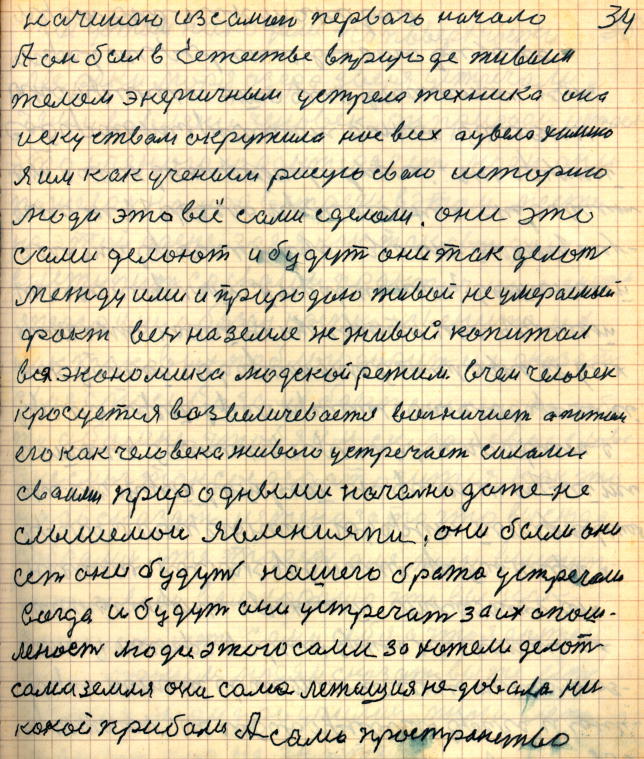 начинаю из самаги перваго начало 34
А он был в Естестве в природе живым
телом энергичным устрела техника она
искуствам окружила нас всех а увела химию
я им как ученим рисую сваю историю
люди это всё сами сделали. они это
сами делоют и будут они так делот
между ими и природаю живой не умераемый
факт вся на земле не живой копитал
вся экономика людской режим в чем человек
красуется возвеличевается вои ничиет а потом
его как человека живого устречает силами
сваими природными начално даже не
слышемои явлениями. они были они
ест они будут нашего брата устречали
всегда и будут они устречат за их опош-
леност люди этого сами захотели делот
сама земля она сама лежащия не довала ни
какой прибали А само пространство